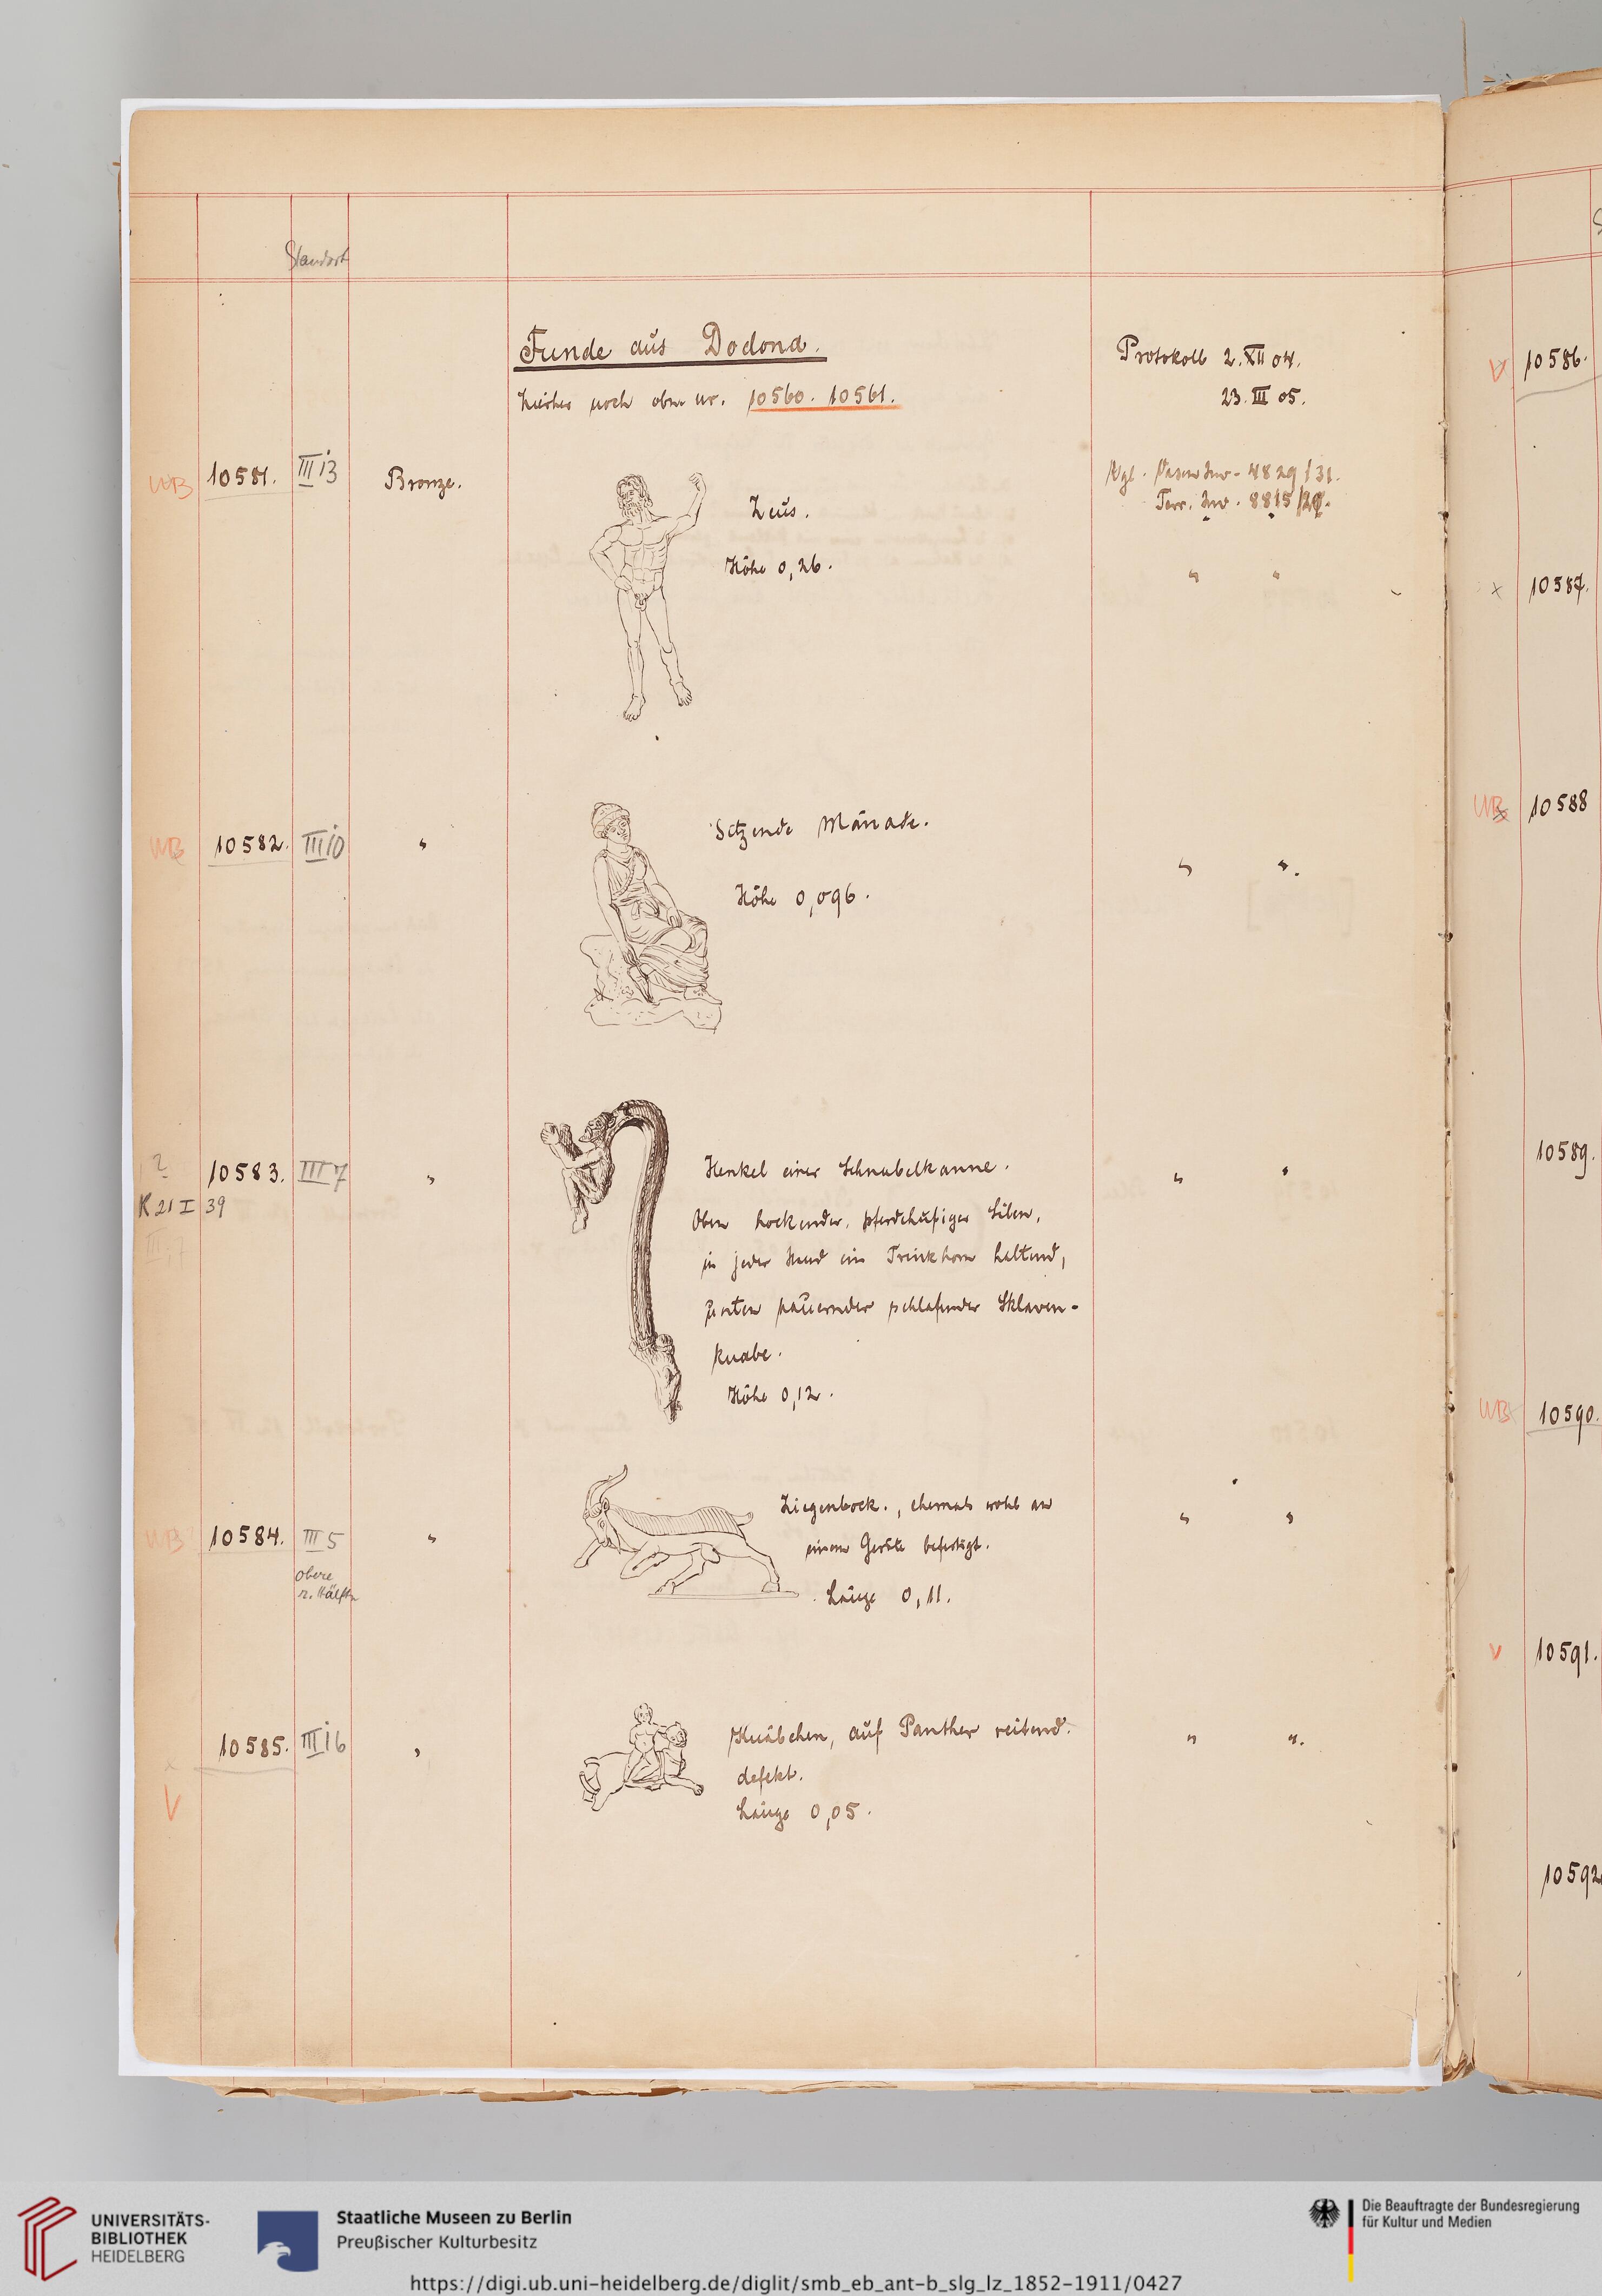 Standort
Funde aus Dodona.
hierher noch oben nr. 10560. 10561.
Protokoll 2. XII 04.
23. III 05.
WB 10581. III i3 Bronze.
Zeus.
Höhe 0,26.
Vgl. Vasen Inv. 4829/31.
Terr. Inv. 8815/
" "
WB 10582. III i0 "
Sitzende Mänade.
Höhe 0,096.
" ".
? 10583. III 7 "
K 21 I 39
III i7
Henkel einer Schnabelkanne.
Oben hockender, pferdehufiger Silen,
in jeder Hand ein Trinkhorn haltend,
unten kauernder schlafender Sklaven-
knabe.
Höhe 0,12.
" "
WB 10584. III 5 "
obere
r. Hälfte
Ziegenbock., ehemals wohl an
einem Geräte befestigt.
Länge 0,11.
" "
x 10585. III i6 "
V
Knäbchen, auf Panther reitend.
defekt.
Länge 0,05.
" ".
V 10586.
x 10587.
WB 10588
10589.
WB 10590.
V 10591.
10592
UNIVERSITÄTS-
BIBLIOTHEK
HEIDELBERG
Staatliche Museen zu Berlin
Preußischer Kulturbesitz
Die Beauftragte der Bundesregierung
für Kultur und Medien
https://digi.ub.uni-heidelberg.de/diglit/smb_eb_ant-b_slg_lz_1852-1911/0427